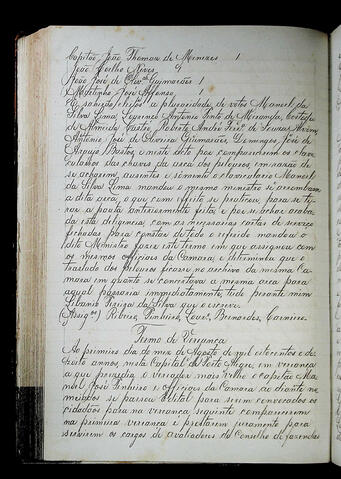 Capitão João Thomaz de Menezes 1
João Coelho Neves 9
João José de Olivª Guimarães 1
Martinho José Affonso 1
E sahirão eleitos a pluralidade de votos Manoel da
Silva Lima, Antonio Pinto de Miranda,
de Almeida Castro,
Antonio José de Oliveira Guimarães, Domingos José de
Araujo Bastos, e neste acto por comparecerem os clavi
cularios das chaves da arca dos pelouros, em razão de
se acharem ausentes e somente o claviculario Manoel
da Silva Lima mandou o mesmo ministro se arrombasse
a dita arca, o que com effeito se praticou, para se ti-
rar a pauta anteriormente feita, e por se achar acaba-
da esta diligencia com as necessarias cartas de serviço
fechadas para constar de todo o referido mandou o
dito Ministro fazer este termo em que assignou com
os mesmos officiaes da Camara e determinou que o
traslado dos pelouros ficasse no archivo da mesma Ca-
mara em quanto se concertava a mesma arca para
a qual passaria immediatamente, tudo perante mim
da Silva que o escrevi.
Ribeiro, Pinheiro, Bernardes, Carneiro.
Termo de Vereança
Ao primeiro dia do mez de Agosto de mil oitocentos e de-
zoito annos, nesta Capital de Porto Alegre, em vereança
a que presedio o vereador mais velho o capitão Ma-
noel José Pinheiro e officiaes da Camara ao diante no-
meados se passou Edital para serem convocados os
cidadãos para na vereança seguinte comparecerem
na primeira vereança e prestarem juramento para
servirem os cargos de avaliadores do Conselho de fazendas